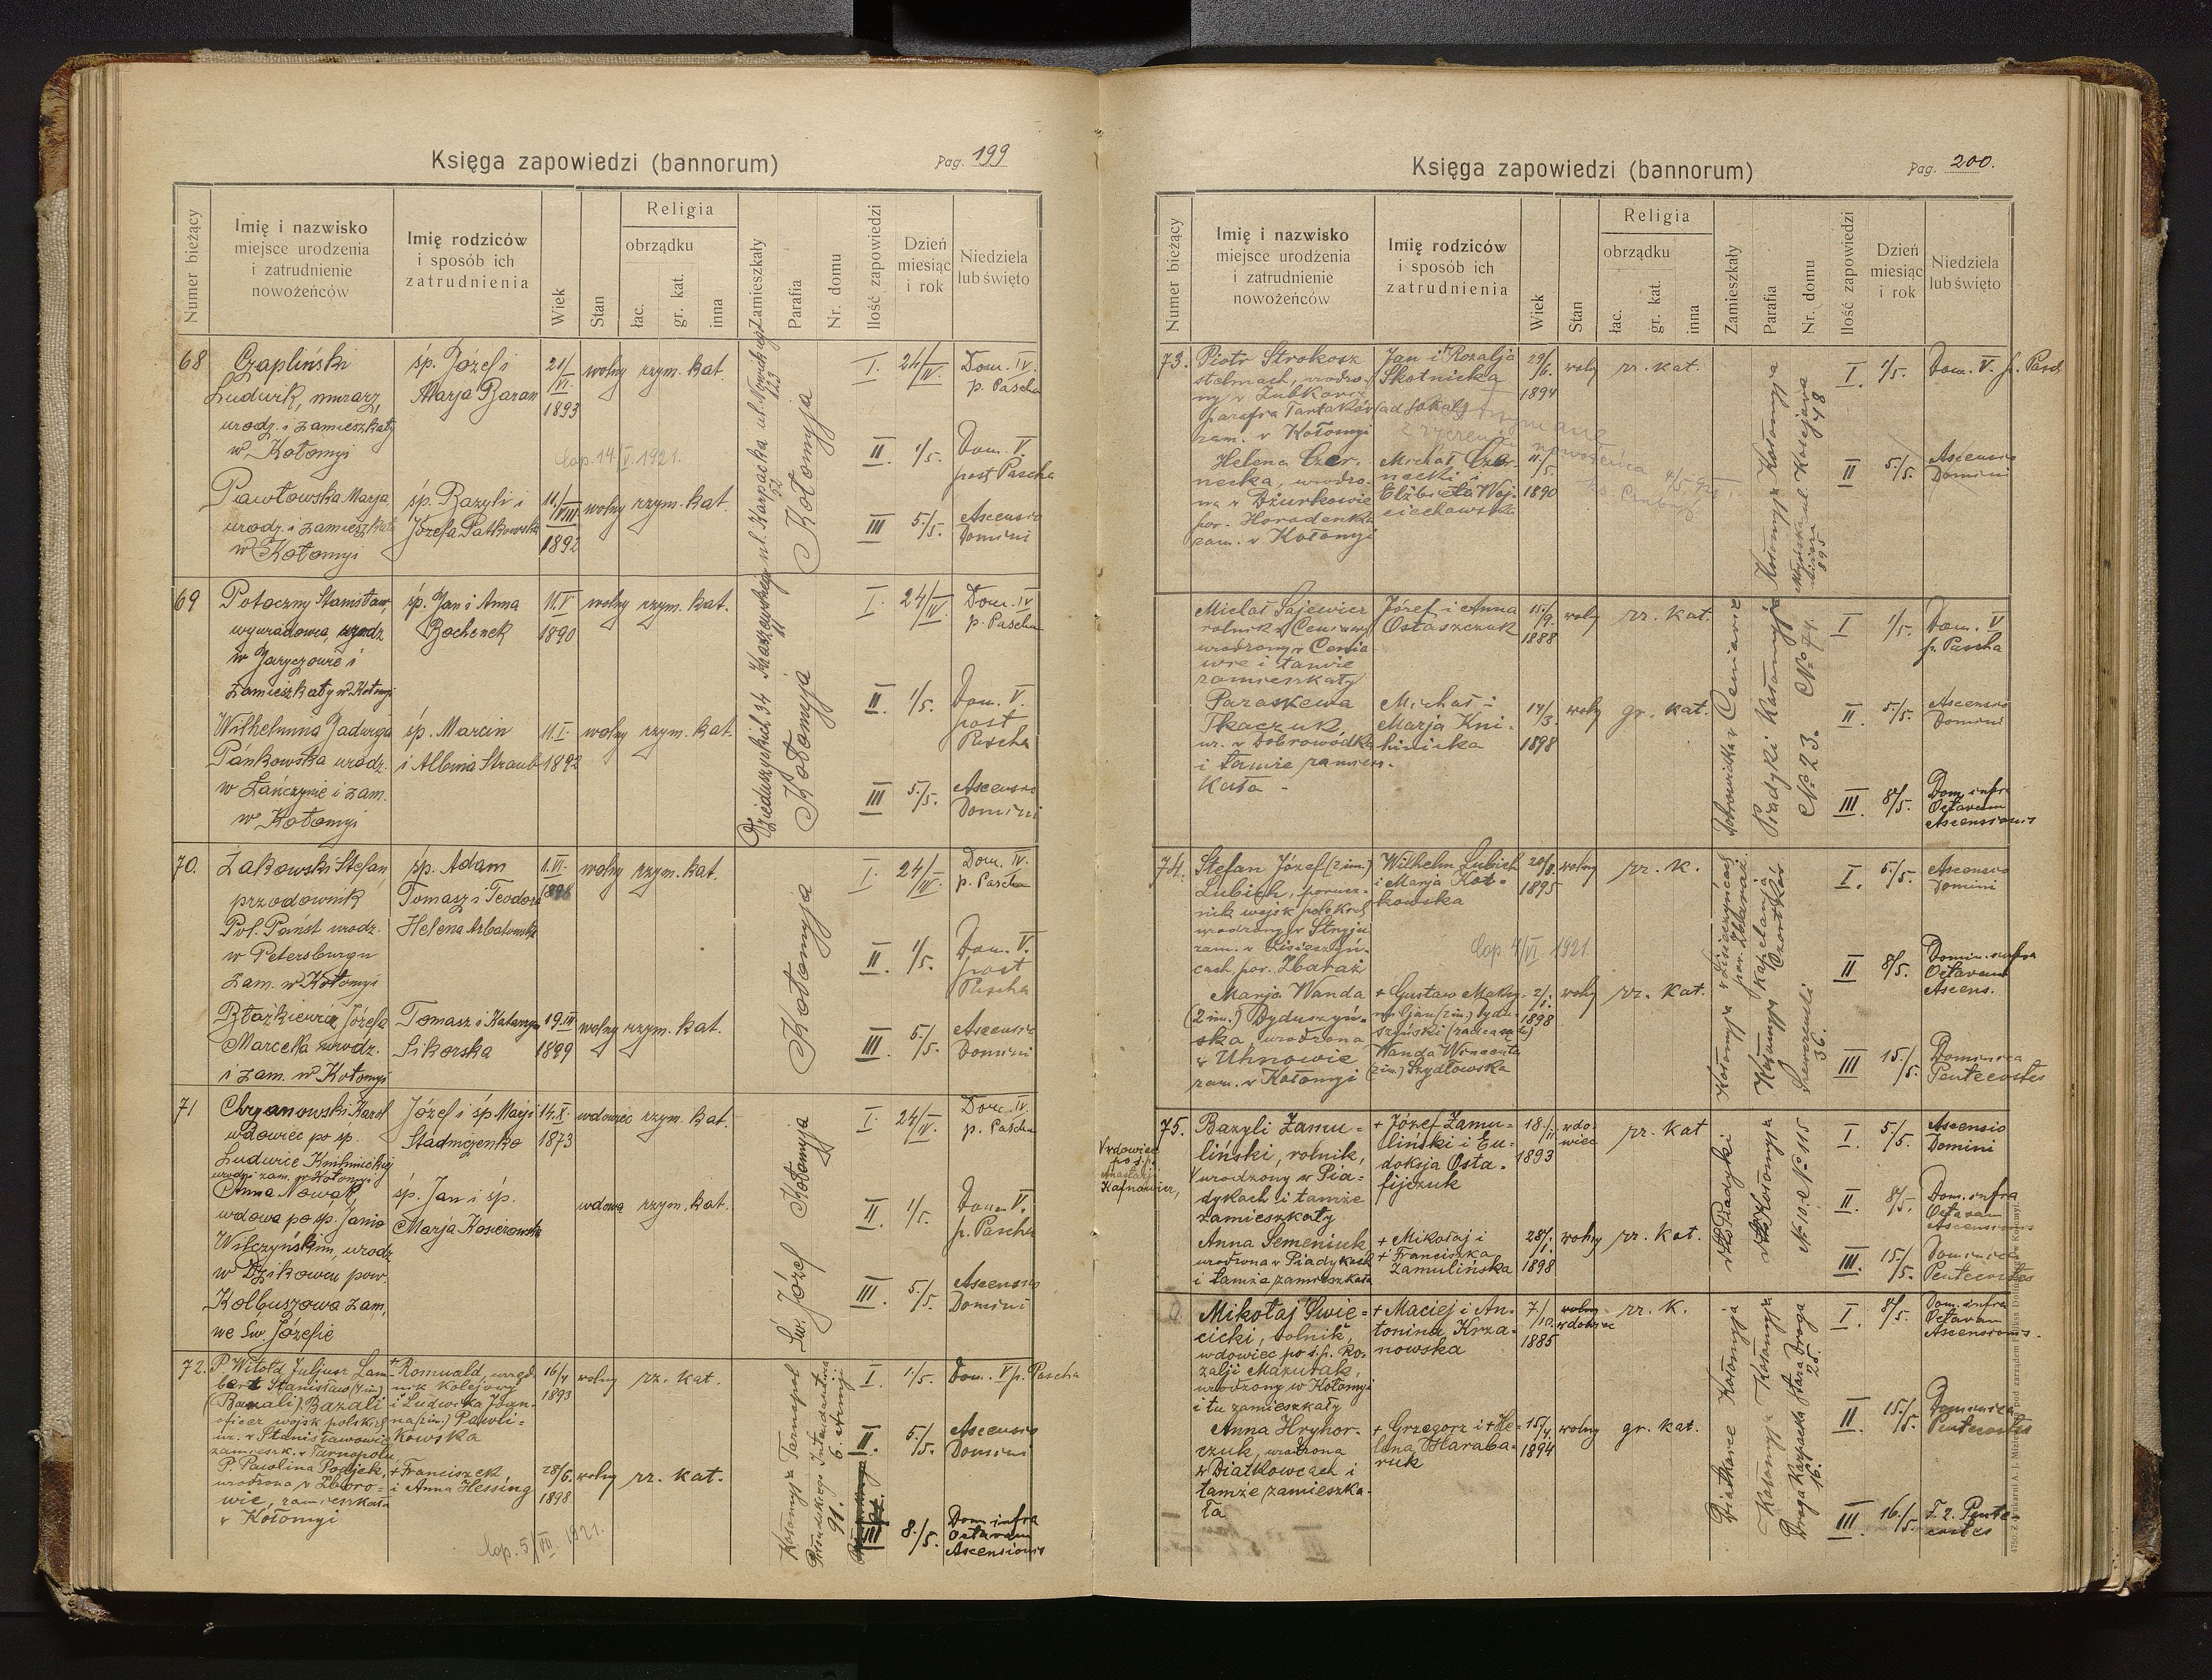 Księga zapowiedzi (bannorum)
Pag. 199
Numer bieżący
Imię i nazwisko
miejsce urodzenia
i zatrudnienie
nowożeńców
Imię rodziców
i sposób ich
zatrudnienia
Wiek
Stan
Religia
obrządku
łac.
gr. kat.
inna
Zamieszkały
Parafia
Nr. domu
Ilość zapowiedzi
Dzień
miesiąc
i rok
Niedziela
lub święto
68
Czapliński
Ludwik, murarz,
urodz. i zamieszkały
w Kołomyi
śp. Józef i
Marja Baran
21/VI 1893
wolny rzym. kat.
cop. 14/V 1921.
Pawłowska Marja
urodz. i zamieszkała
w Kołomyi
śp. Bazyli i
Józefa Patkowska
11/VIII 1892
wolny rzym. kat.
ul. Karpacka 52
Kołomyja
I. 24/IV. Dom. IV. p. Pascha
II. 1/5. Dom. V. post Pascha
III 5./5. Ascensio Domini
69
Potoczny Stanisław,
wywiadowca, urodz
w Jaryczowie i
zamieszkały w Kołomyi
śp. Jan i Anna
Bochenek
11.V 1890
wolny rzym. kat.
Wilhelmina Jadwiga
Pańkowska urodz.
w Łańczynie i zam.
w Kołomyi
śp. Marcin
i Albina Straub
11.I. 1892
wolny rzym. kat.
Dzieduszyckich 34 Kraszewskiego 11
Kołomyja
I. 24/IV. Dom. IV p. Pascha
II. 1/5. Dom. V. post Pascha
III 5./5. Ascensio Domini
70.
Żakowski Stefan
przodownik
Pol. Państ urodz.
w Petersburgu
zam. w Kołomyi
śp. Adam
Tomasz i Teodora
Helena
1.VI.
wolny rzym. kat.
Błażkiewicz Józefa
Marcela urodz.
i zam. w Kołomyi
Tomasz i Katarzyna
Sikorska
19.III 1899
wolny rzym. kat.
Kołomyja
I. 24/IV. Dom. IV. p. Pascha
II. 1/5. Dom. V. post Pascha
III. 5/5. Ascensio Domini
71
Chrzanowski Karol
wdowiec po śp.
Ludwice
urodz i zam. w Kołomyi
Józef i śp Marji
Stadniczenko
14.X. 1873
wdowiec rzym. kat.
Anna Nowak,
wdowa po śp. Janie
Wilczyńskim, urodz
w Dzikowcu pow.
Kolbuszowa zam,
we Św. Józefie
śp. Jan i śp.
Marja
wdowa rzym. kat.
Św. Józef Kołomyja
I. 24/IV. Dom. IV. p. Pascha
II. 1/5. Dom. V. p. Pascha
III. 5/5. Ascensio Domini
72.
P Witold Juljusz Lam-
bert Stanisław (4 im.)
(Banali) Bazali
oficer wojsk polskich
ur. w Stanisławowie
zamieszk. w Tarnopolu
+ Romuald, urzęd-
nik kolejowy
i Ludwika Joan-
na (2 im.) Pawli-
kowska
16/4 1893
wolny rz. kat.
P. Paulina Podjek,
urodzona w Zboro-
wie, zamieszkała
w Kołomyi
+ Franciszek
i Anna Hessing
28/6. 1898
wolny rz. kat.
cop. 5/VII. 1921.
Kołomyja Tarnopol
I. 1/5. Dom. V p. Pascha
II. 5/5. Ascensio Domini
III 8./5. Dom. infra Octavam Ascensionis
Księga zapowiedzi (bannorum)
Pag. 200.
Numer bieżący
Imię i nazwisko
miejsce urodzenia
i zatrudnienie
nowożeńców
Imię rodziców
i sposób ich
zatrudnienia
Wiek
Stan
Religia
obrządku
łac.
gr. kat.
inna
Zamieszkały
Parafia
Nr. domu
Ilość zapowiedzi
Dzień
miesiąc
i rok
Niedziela
lub święto
73.
Piotr Strokosz
stelmach, urodzo-
ny w
parafia Tartaków (ad Sokal)
zam. w Kołomyi
Jan i Rozalja
Skotnicka
29/6. 1894
wolny rz. kat.
Helena Czar-
necka, urodzo-
na w Dżurkowie
por. Horodenka
zam. w Kołomyi
Michał Czar-
necki i
Elżbieta Woj-
ciechowska
11/5. 1890
Kołomyja Kołomyja
48
I. 1/5. Dom. V. p. Pasch
II 5./5. Ascensio Domini
Michał Sajewicz
rolnik w Ceniawie
urodzony w Cenia-
wie i tamże
zamieszkały
Józef i Anna
Ostaszczuk
15/9. 1888
wolny rz. kat.
Paraskewa
Tkaczuk,
ur. w Dobrowódka
i tamże zamiesz-
kała -
Michał i
Marja Kni-
hinicka
14/3. 1898
wolny gr. kat.
Ceniawie
Piadyki Kołomyja
No 23. No 74.
I 1/5. Dom. V p. Pascha
II. 5./5. Ascensio Domini
III 8/5. Dom. infra Octavam Ascensionis
74.
Stefan Józef (2 im.)
Lubich, porucz-
nik wojsk polskich
urodzony w Stryju
zam. w Lisieczyń-
cach, por. Zbaraż
Wilhelm Lubich
i Marja Kot-
kowska
1895
wolny rz. k.
cop 4/VI 1921
Marja Wanda
(2 im.) Dyduszyń-
ska, urodzona
w Uhnowie
zam. w Kołomyi
+ Gustaw
Jan (2 im.) Dydu-
szyński
Wanda Wincenta
(2 im.) Szydłowska
2/1. 1898
wolny rz. kat.
Kołomyja
Kołomyja kapelanja
36.
I. 5/5. Ascensio Domini
II 8/5. Domin. infra Octavam Ascens.
III 15./5. Dominica Pentecostes
75.
Wdowiec
po ś.p.
Anastazji
Bazyli Zamu-
liński, rolnik,
urodzony w Pia-
dykach i tamże
zamieszkały
+ Józef Zamu-
liński i Eu-
doksja Osta-
fijczuk
18./11. 1893
wdo-
wiec
rz. kat
Anna Semeniuk
urodzona w Piadykach
i tamże zamieszkała
+ Mikołaj i
+ Franciszka
Zamulińska
28/1. 1898
wolny rz. kat.
Piadyki
Kołomyja
No 10. No 115
I. 5/5. Ascensio Domini
II. 8/5- Dom. infra Octavam Ascensionis
III. 15/5. Dominica Pentecostes
Mikołaj Świę-
cicki, rolnik,
wdowiec po ś.p. Ro-
zalji Mazurak,
urodzony w Kołomyi
i tu zamieszkały
+ Maciej i An-
tonina Krza-
nowska
7./10. 1885
wolny
wdowiec
rz. k.
Anna Hryhor-
czuk, urodzona
w Diatkowcach i
tamże zamieszka-
ła
+ Grzegorz i + He-
lena Haraba-
ruk
15/4. 1894
wolny gr. kat.
Diatkowce Kołomyja
Kołomyja Kołomyja
Droga Karpacka 16. Stara Droga 25.
I. 8/5. Dom. infra Octavam Ascensionis.
II 15./5. Dominica Pentecostes
III. 16/5. F. 2. Pente-
costes